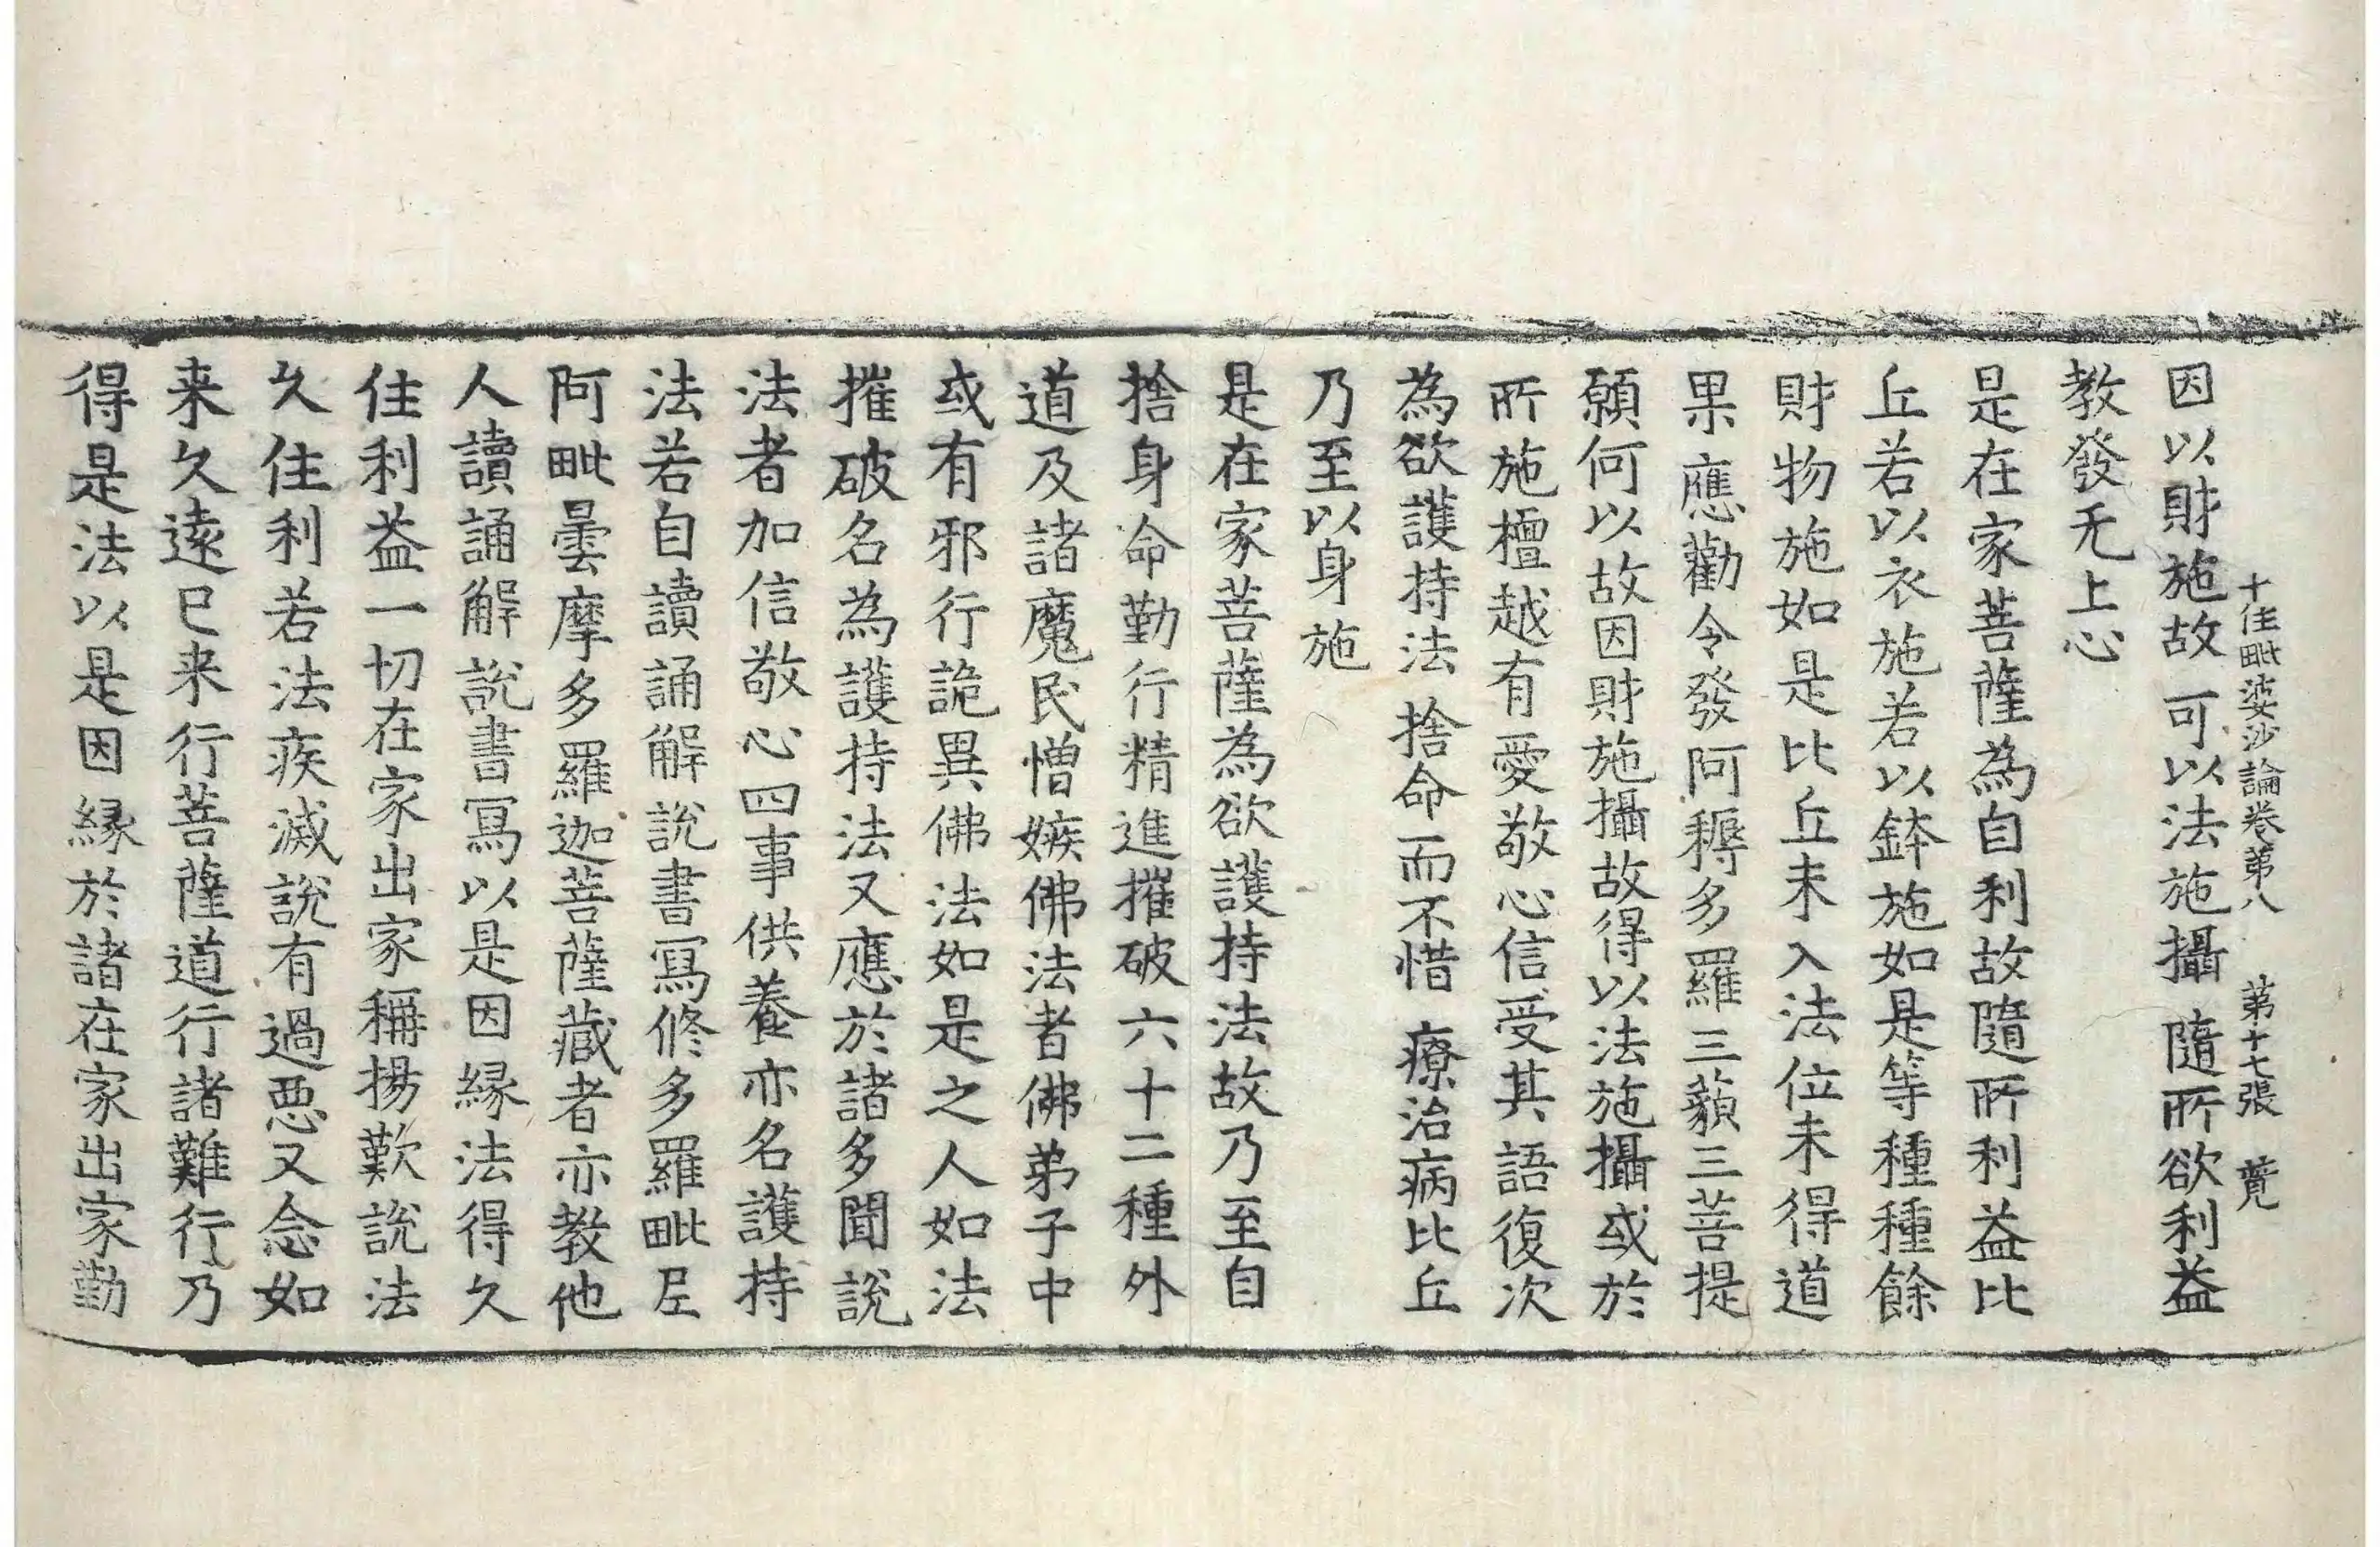 十住毗婆沙論卷第八　第十七張　竟
因以財施故可以法施攝隨所欲利益
教發无上心
是在家菩薩為自利故隨所利益比
丘若以衣施若以鉢施如是等種種餘
財物施如是比丘未入法位未得道
果應勸令發阿耨多羅三藐三菩提
願何以故因財施攝故得以法施攝或於
所施檀越有愛敬心信受其語復次
為欲護持法捨命而不惜療治病比丘
乃至以身施
是在家菩薩為欲護持法故乃至自
捨身命勤行精進摧破六十二種外
道及諸魔民憎嫉佛法者佛弟子中
或有邪行詭異佛法如是之人如法
摧破名為護持法又應於諸多聞說
法者加信敬心四事供養亦名護持
法若自讀誦解說書寫修多羅毗尼
阿毗曇摩多羅迦菩薩藏者亦教他
人讀誦解說書寫以是因緣法得久
住利益一切在家出家稱揚歎說法
久住利若法疾滅說有過惡又念如
来久遠已来行菩薩道行諸難行乃
得是法以是因緣於諸在家出家勤